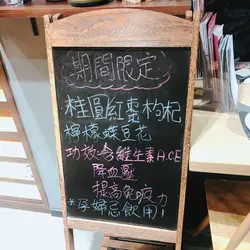 期間限定
桂圓紅棗枸杞
檸檬蝶豆花
功效:含維生素A.C.E
降血壓
提高免疫力
*孕婦忌飲用!